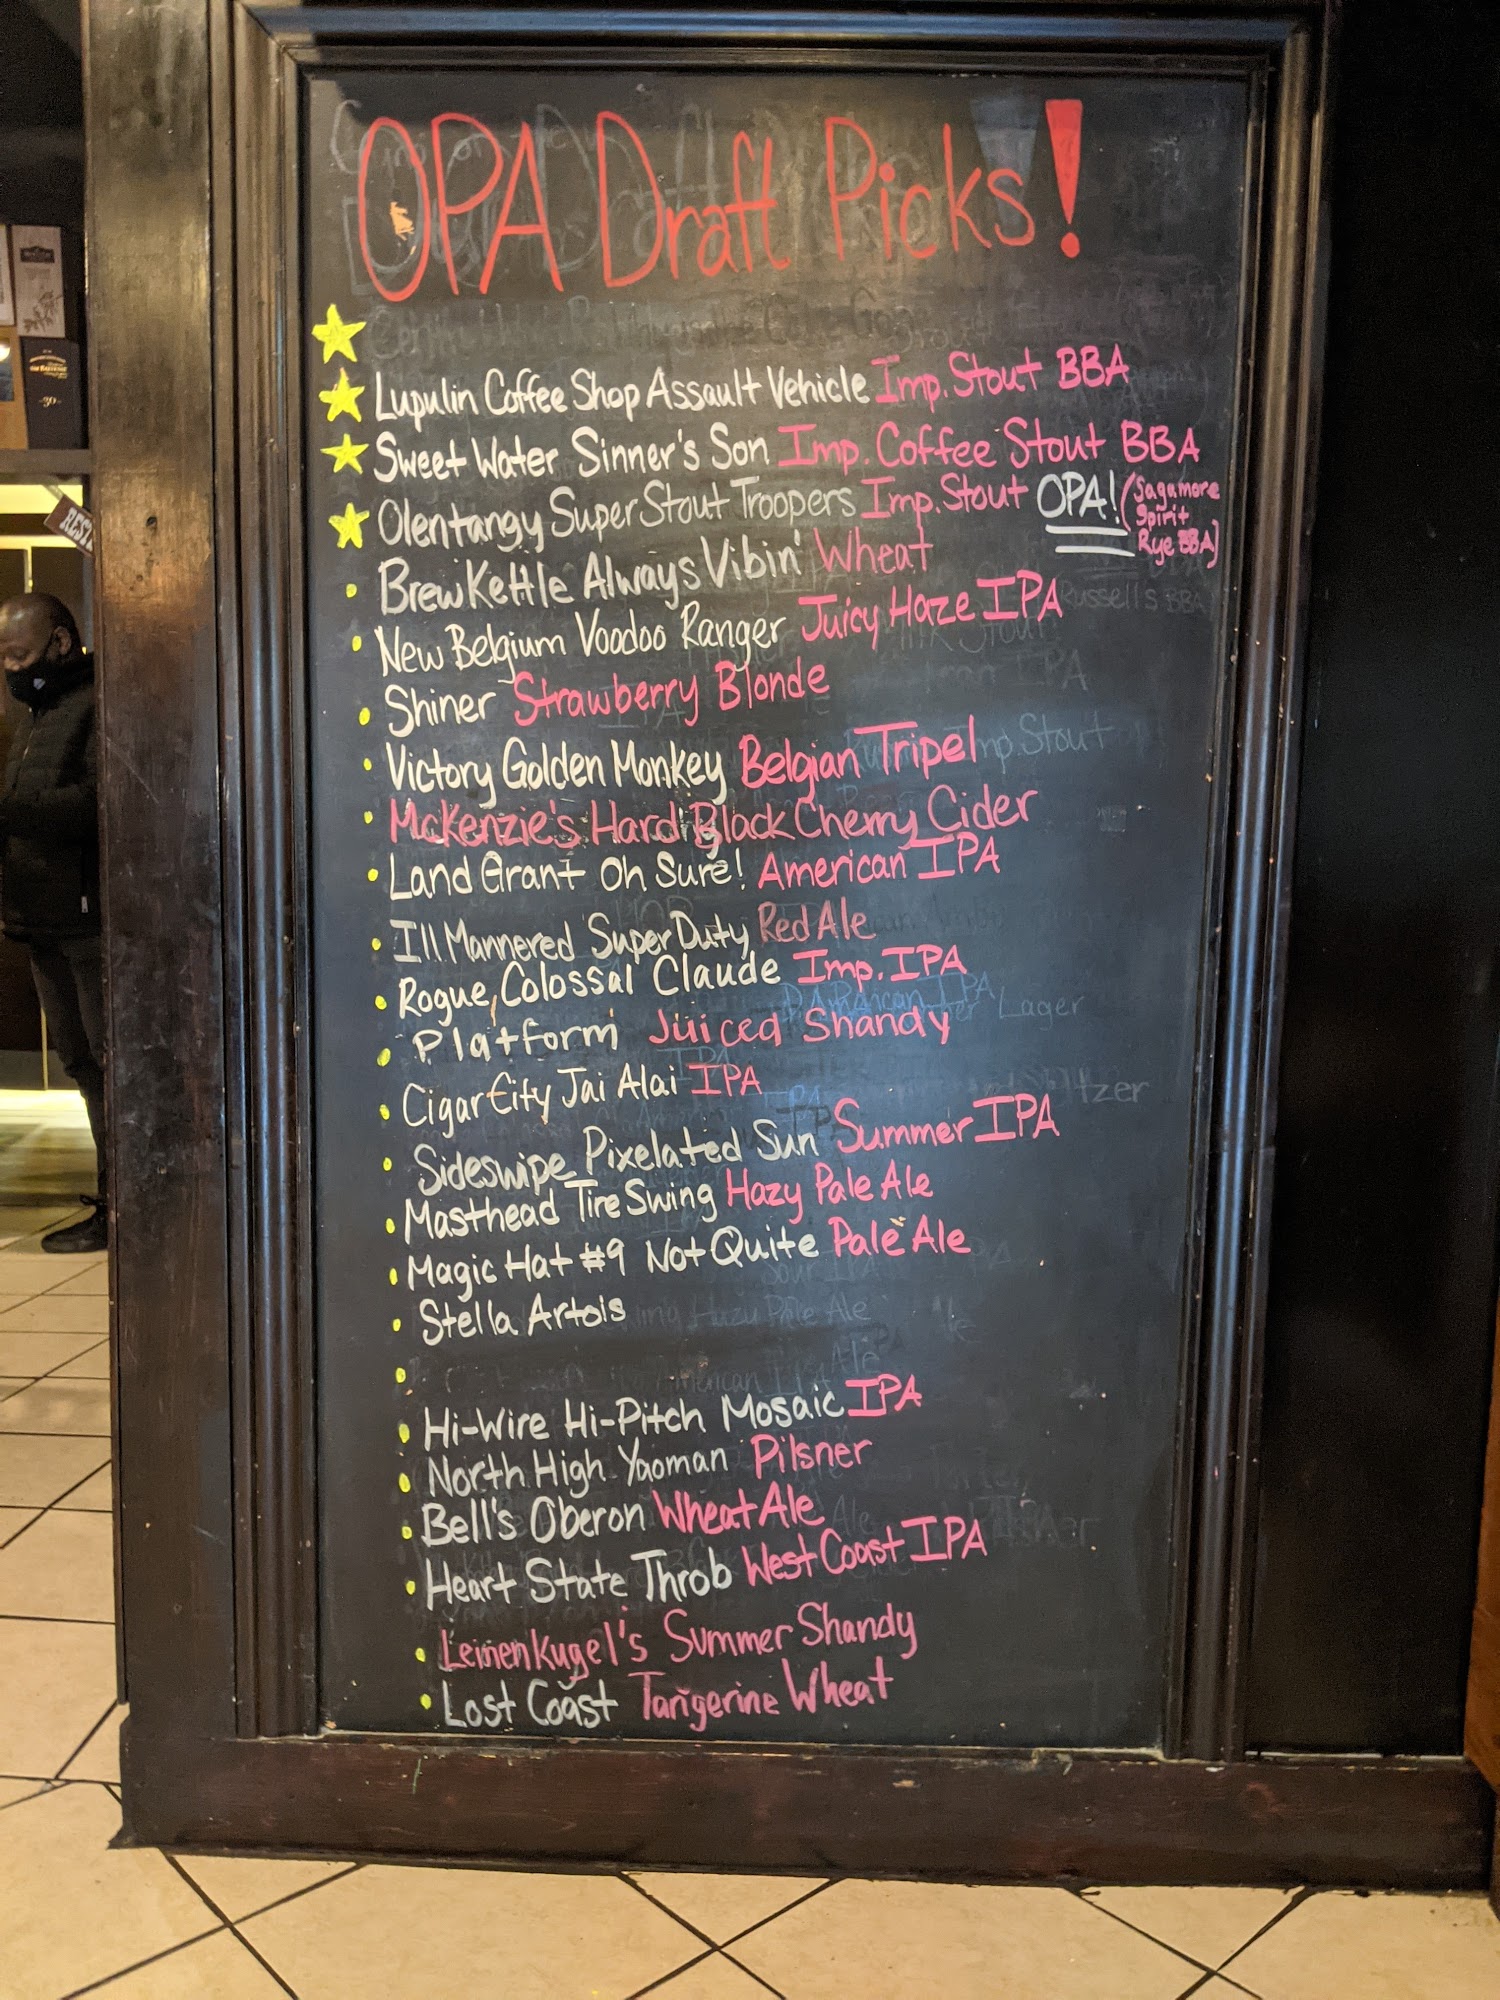 OPA Draft Picks!
Lupulin Coffee Shop Assault Vehicle Imp. Stout BBA
Sweet Water Sinner's Son Imp. Coffee Stout BBA
Olentangy Super Stout Troopers Imp. Stout OPA! (Sagamore
Spirit
Rye BBA)
BrewKettle Always Vibin' Wheat
New Belgium Voodoo Ranger Juicy Haze IPA
Shiner Strawberry Blonde
Victory Golden Monkey Belgian Tripel
McKenzie's Hard Black Cherry Cider
Land Grant Oh Sure! American IPA
Ill Mannered Super Duty Red Ale
Rogue Colossal Claude Imp. IPA
Platform Juiced Shandy
Cigar City Jai Alai IPA
Sideswipe Pixelated Sun Summer IPA
Masthead Tire Swing Hazy Pale Ale
Magic Hat #9 Not Quite Pale Ale
Stella Artois
Hi-Wire Hi-Pitch Mosaic IPA
North High Yaoman Pilsner
Bell's Oberon Wheat Ale
Heart State Throb West Coast IPA
Leinenkugel's Summer Shandy
Lost Coast Tangerine Wheat